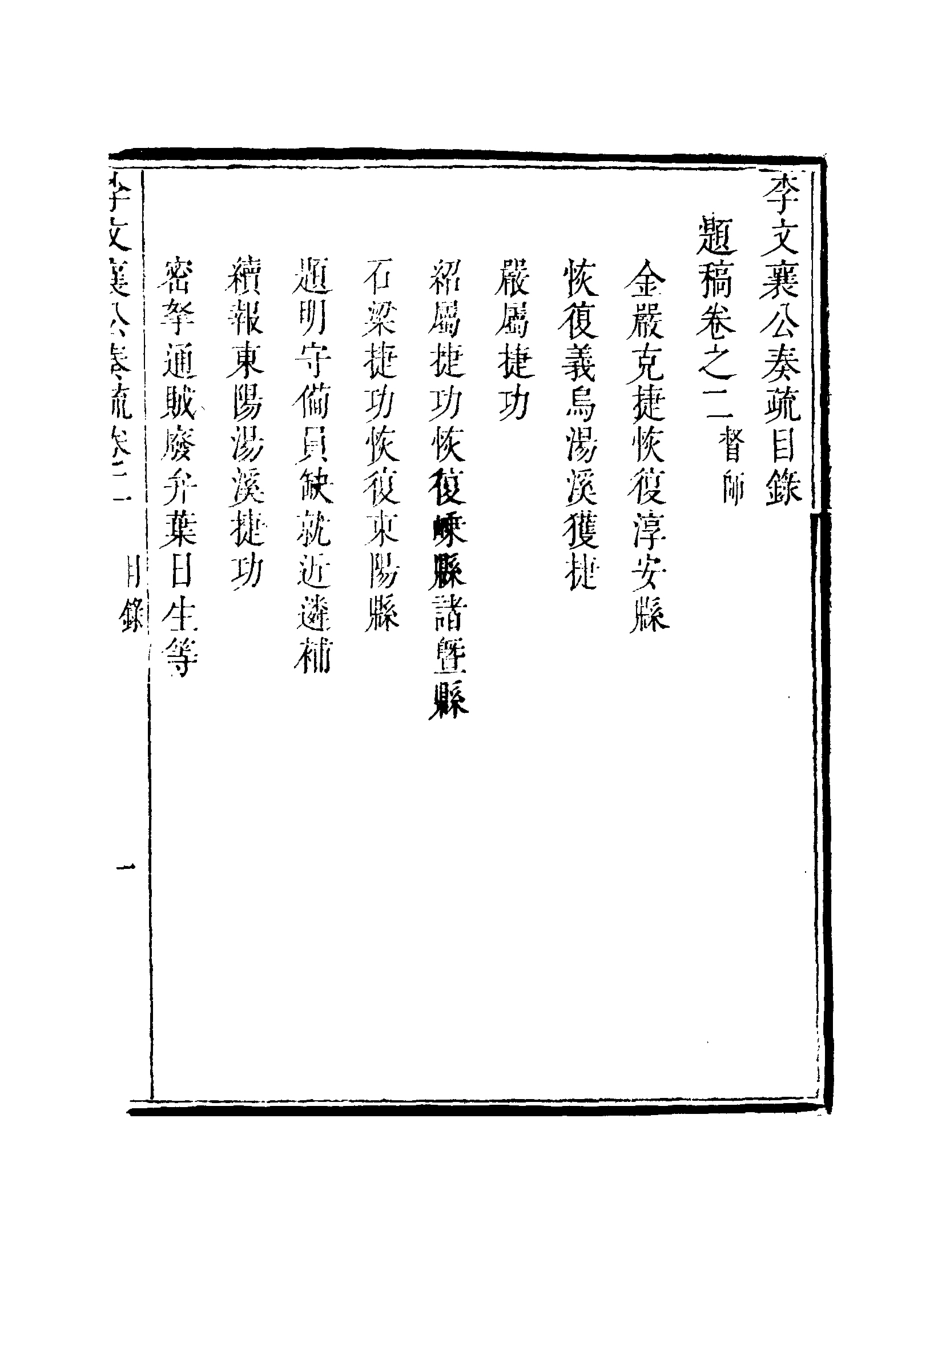 李文襄公奏疏目錄
題稿卷之二督師
金嚴克捷恢復淳安縣
恢復義烏湯溪獲捷
嚴屬捷功
紹屬捷功恢復嵊縣諸暨縣
石梁捷功恢復東陽縣
題明守備員缺就近遴補
續報東陽湯溪捷功
密拏通賊廢弁葉日生等
李文襄公奏疏卷二 目錄 一